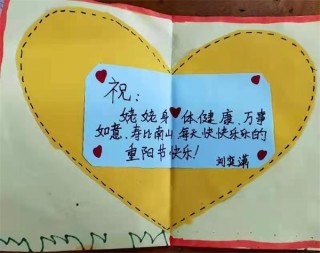 祝:
姥姥身体健康、万事
如意、寿比南山每天快快乐乐的
重阳节快乐!